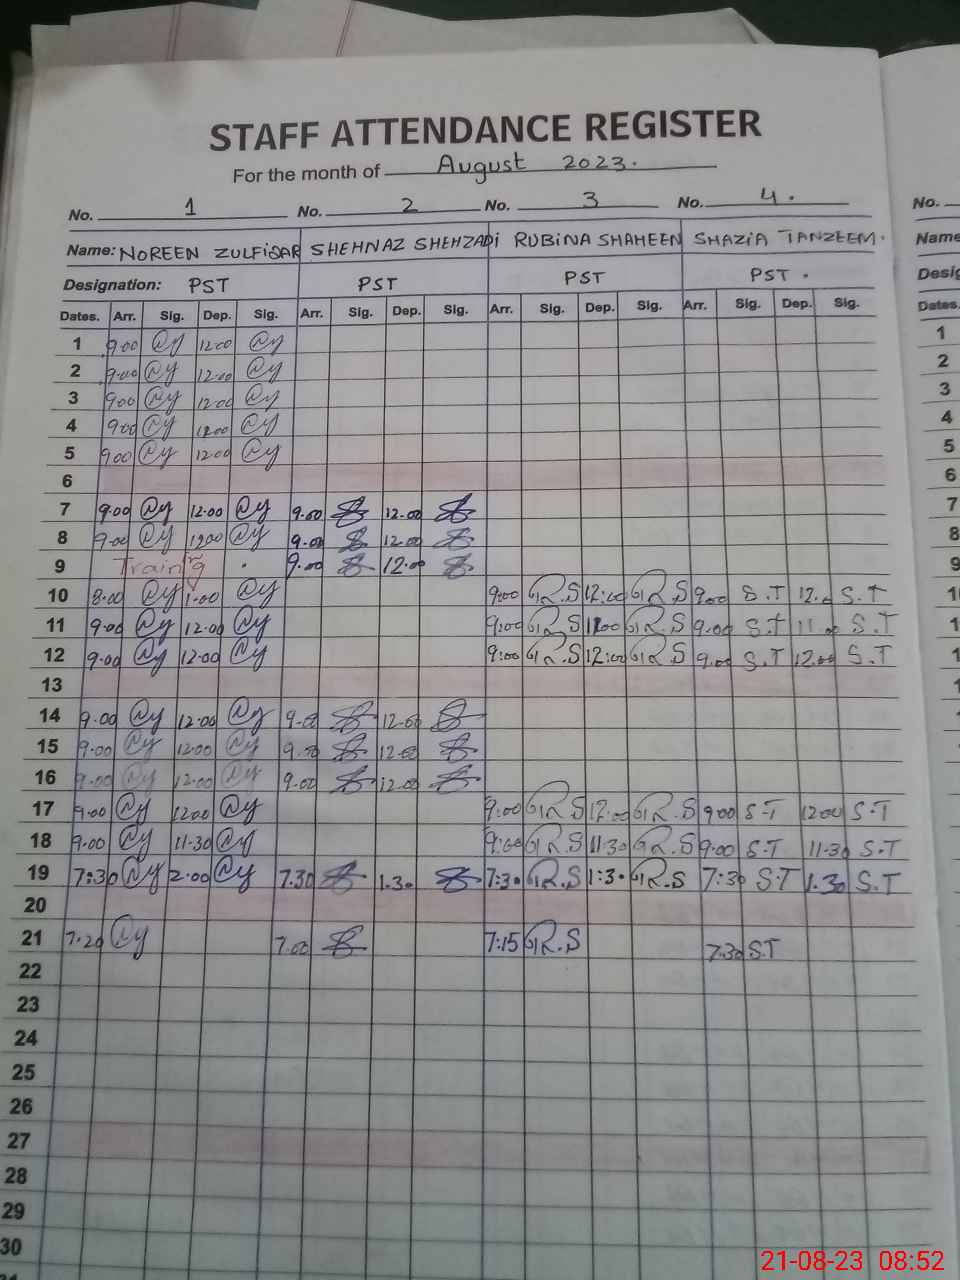 STAFF ATTENDANCE REGISTER
For the month of August 2023.
No. 1 No. 2 No. 3 No. 4. No.
Name: NOREEN ZULFIQAR SHEHNAZ SHEHZADI RUBINA SHAHEEN SHAZIA TANZEEM. Name
Designation: PST PST PST PST. Desig
Dates. Arr. Sig. Dep. Sig. Arr. Sig. Dep. Sig. Arr. Sig. Dep. Sig. Arr. Sig. Dep. Sig. Dates.
1 9.00 12.00 1
2 9.00 12.00 2
3 9.00 12.00 3
4 9.00 12.00 4
5 9.00 12.00 5
6 6
7 9.00 12.00 9.00 12.00 7
8 9.00 9.00 12.00 8
9 Training 9.00 12.00 9
10 8.00 1.00 9:00 R.S 12:00 R.S 9.00 S.T 12.0 S.T
11 9.00 12.00 9:00 R.S R.S 9.00 S.T 11.00 S.T
12 9.00 12.00 9:00 R.S 12:00 R.S 9.00 S.T 12.00 S.T
13
14 9.00 12.00 9.00 12.00
15 9.00 12.00 9.00 12.00
16 9.00 12.00 9.00 12.00
17 9.00 12.00 9:00 R.S 12:00 R.S 9.00 S.T 12.00 S.T
18 9.00 11.30 9:00 R.S 11:30 R.S 9.00 S.T 11.30 S.T
19 7:30 2.00 7.30 1.30 7:30 R.S 1:30 R.S 7:30 S.T 1.30 S.T
20
21 7.20 7.00 7:15 R.S 7.30 S.T
22
23
24
25
26
27
28
29
30
21-08-23 08:52